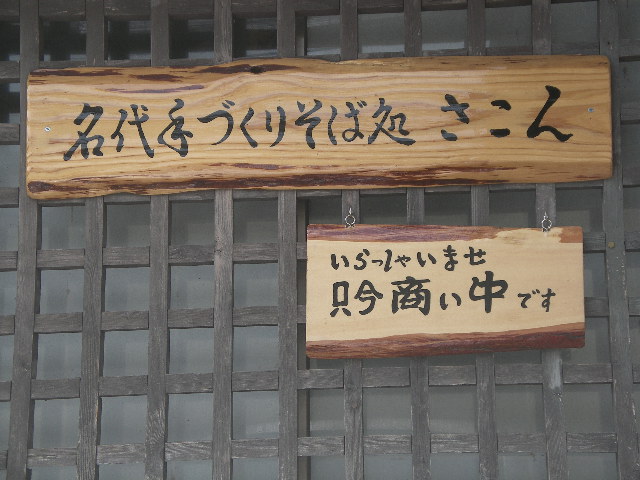 名代手づくりそば処 さこん
いらっしゃいませ
只今商い中です